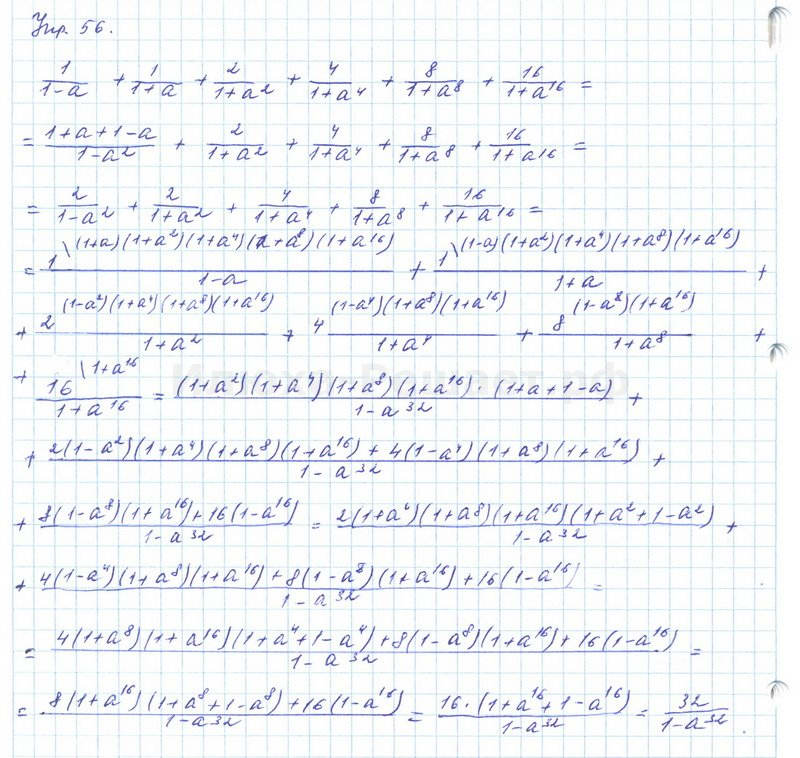 Упр. 56.
1/(1-a) + 1/(1+a) + 2/(1+a²) + 4/(1+a⁴) + 8/(1+a⁸) + 16/(1+a¹⁶) =
= (1+a+1-a)/(1-a²) + 2/(1+a²) + 4/(1+a⁴) + 8/(1+a⁸) + 16/(1+a¹⁶) =
= 2/(1-a²) + 2/(1+a²) + 4/(1+a⁴) + 8/(1+a⁸) + 16/(1+a¹⁶) =
= 1\(1+a)(1+a²)(1+a⁴)(1+a⁸)(1+a¹⁶)/(1-a) + 1\(1-a)(1+a²)(1+a⁴)(1+a⁸)(1+a¹⁶)/(1+a) +
+ 2 (1-a²)(1+a⁴)(1+a⁸)(1+a¹⁶)/(1+a²) + 4 (1-a⁴)(1+a⁸)(1+a¹⁶)/(1+a⁴) + 8 (1-a⁸)(1+a¹⁶)/(1+a⁸) +
+ 16\1+a¹⁶/(1+a¹⁶) = (1+a²)(1+a⁴)(1+a⁸)(1+a¹⁶)·(1+a+1-a)/(1-a³²) +
+ 2(1-a²)(1+a⁴)(1+a⁸)(1+a¹⁶)+4(1-a⁴)(1+a⁸)(1+a¹⁶)/(1-a³²) +
+ 8(1-a⁸)(1+a¹⁶)+16(1-a¹⁶)/(1-a³²) = 2(1+a⁴)(1+a⁸)(1+a¹⁶)(1+a²+1-a²)/(1-a³²) +
+ 4(1-a⁴)(1+a⁸)(1+a¹⁶)+8(1-a⁸)(1+a¹⁶)+16(1-a¹⁶)/(1-a³²) =
= 4(1+a⁸)(1+a¹⁶)(1+a⁴+1-a⁴)+8(1-a⁸)(1+a¹⁶)+16(1-a¹⁶)/(1-a³²) =
= 8(1+a¹⁶)(1+a⁸+1-a⁸)+16(1-a¹⁶)/(1-a³²) = 16·(1+a¹⁶+1-a¹⁶)/(1-a³²) = 32/(1-a³²)